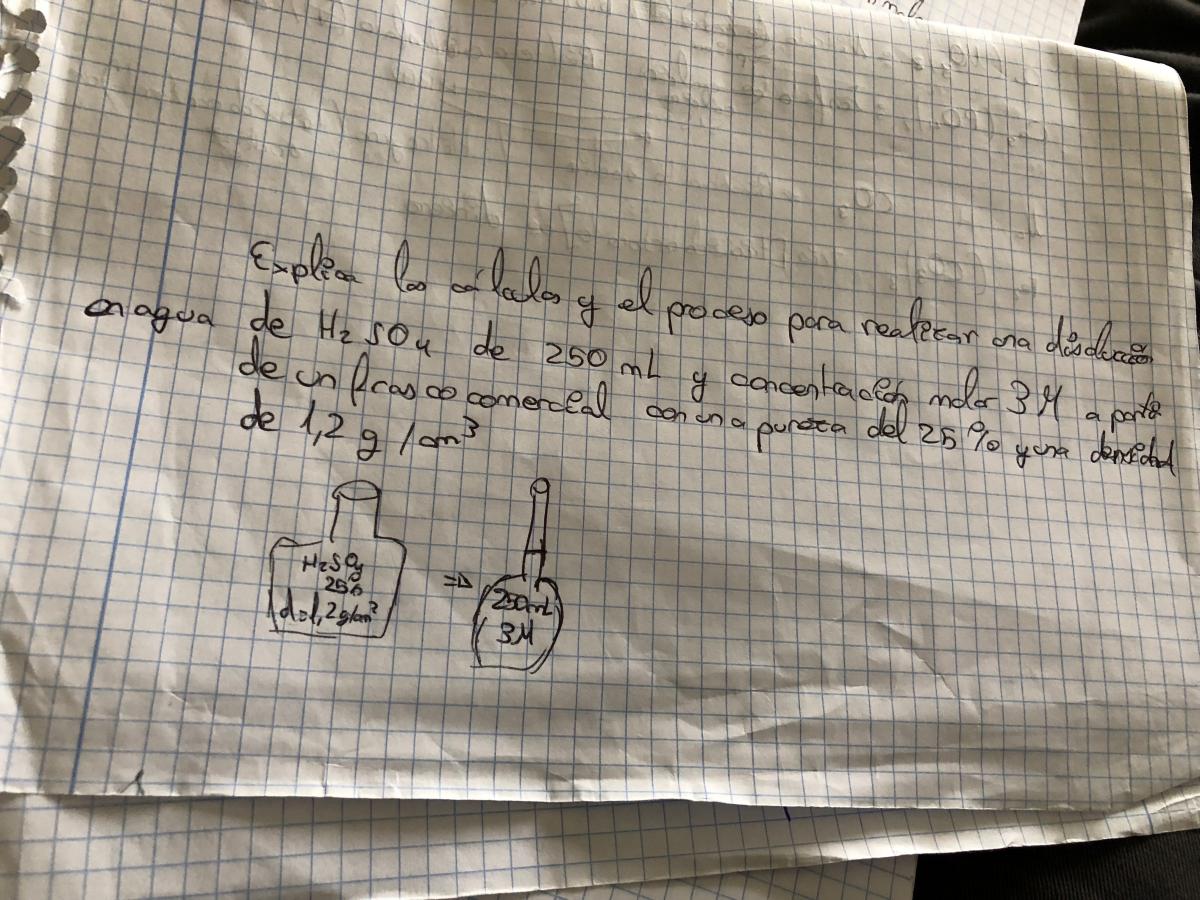 Explica los cálculos y el proceso para realizar una disolución
en agua de H₂SO₄ de 250 mL y concentración molar 3M a partir
de un frasco comercial con una pureza del 25% y una densidad
de 1,2 g/cm³
H₂SO₄
25%
d=1,2g/cm³
⇒
250mL
3M